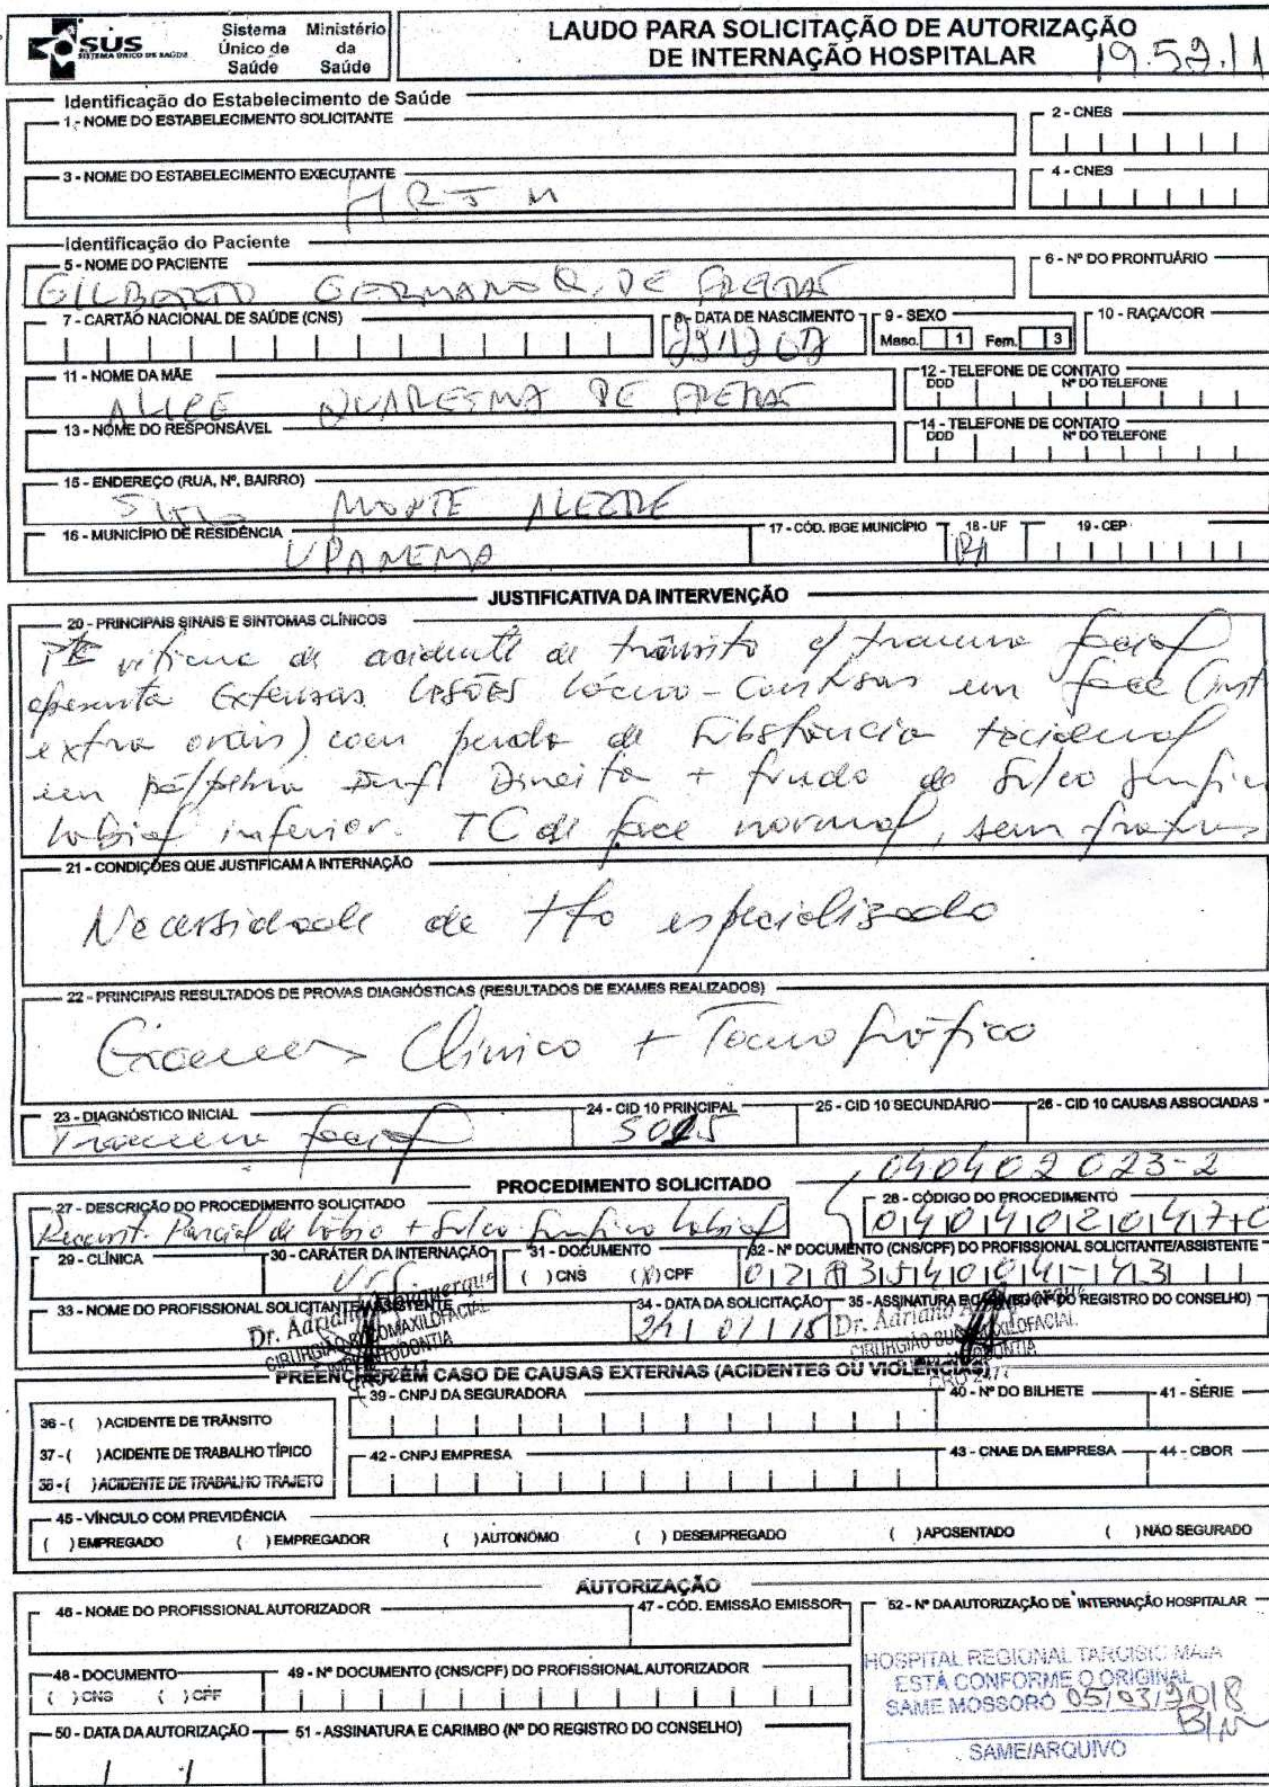 SUS
SISTEMA ÚNICO DE SAÚDE
Sistema Único de Saúde
Ministério da Saúde
LAUDO PARA SOLICITAÇÃO DE AUTORIZAÇÃO
DE INTERNAÇÃO HOSPITALAR
19.59.11
Identificação do Estabelecimento de Saúde
1 - NOME DO ESTABELECIMENTO SOLICITANTE
2 - CNES
3 - NOME DO ESTABELECIMENTO EXECUTANTE
4 - CNES
HRTM
Identificação do Paciente
5 - NOME DO PACIENTE
6 - Nº DO PRONTUÁRIO
GILBERTO GERMANO Q. DE FREITAS
7 - CARTÃO NACIONAL DE SAÚDE (CNS)
8 - DATA DE NASCIMENTO
9 - SEXO
Masc. 1 Fem. 3
10 - RAÇA/COR
11 - NOME DA MÃE
12 - TELEFONE DE CONTATO
DDD Nº DO TELEFONE
ALICE QUARESMA DE FREITAS
13 - NOME DO RESPONSÁVEL
14 - TELEFONE DE CONTATO
DDD Nº DO TELEFONE
15 - ENDEREÇO (RUA, Nº, BAIRRO)
SITIO MONTE ALEGRE
16 - MUNICÍPIO DE RESIDÊNCIA
17 - CÓD. IBGE MUNICÍPIO
18 - UF
19 - CEP
UPANEMA
JUSTIFICATIVA DA INTERVENÇÃO
20 - PRINCIPAIS SINAIS E SINTOMAS CLÍNICOS
PTE vítima de acidente de trânsito c/ trauma facial
apresenta Extensas LESÕES lácero-Contusas em face (int
extra orais) com perda de substância tecidual
em pálpebra Inf Direita + fundo de Sulco gengivo
labial inferior. TC de face normal, sem fraturas
21 - CONDIÇÕES QUE JUSTIFICAM A INTERNAÇÃO
Necessidade de tto especializado
22 - PRINCIPAIS RESULTADOS DE PROVAS DIAGNÓSTICAS (RESULTADOS DE EXAMES REALIZADOS)
Exames Clínico + Tomográfico
23 - DIAGNÓSTICO INICIAL
24 - CID 10 PRINCIPAL
25 - CID 10 SECUNDÁRIO
26 - CID 10 CAUSAS ASSOCIADAS
Trauma facial
040402023-2
PROCEDIMENTO SOLICITADO
27 - DESCRIÇÃO DO PROCEDIMENTO SOLICITADO
28 - CÓDIGO DO PROCEDIMENTO
Reconst. Parcial de lábio + Sulco gengivo labial
040402047-0
29 - CLÍNICA
30 - CARÁTER DA INTERNAÇÃO
31 - DOCUMENTO
( ) CNS (X) CPF
32 - Nº DOCUMENTO (CNS/CPF) DO PROFISSIONAL SOLICITANTE/ASSISTENTE
33 - NOME DO PROFISSIONAL SOLICITANTE/ASSISTENTE
34 - DATA DA SOLICITAÇÃO
35 - ASSINATURA E CARIMBO (Nº DO REGISTRO DO CONSELHO)
Dr. Adriano Albuquerque
CIRURGIÃO BUCOMAXILOFACIAL
24/01/18
Dr. Adriano
CIRURGIÃO BUCOMAXILOFACIAL
PREENCHER EM CASO DE CAUSAS EXTERNAS (ACIDENTES OU VIOLÊNCIAS)
36 - ( ) ACIDENTE DE TRÂNSITO
37 - ( ) ACIDENTE DE TRABALHO TÍPICO
38 - ( ) ACIDENTE DE TRABALHO TRAJETO
39 - CNPJ DA SEGURADORA
40 - Nº DO BILHETE
41 - SÉRIE
42 - CNPJ EMPRESA
43 - CNAE DA EMPRESA
44 - CBOR
45 - VÍNCULO COM PREVIDÊNCIA
( ) EMPREGADO ( ) EMPREGADOR ( ) AUTONÔMO ( ) DESEMPREGADO ( ) APOSENTADO ( ) NÃO SEGURADO
AUTORIZAÇÃO
46 - NOME DO PROFISSIONAL AUTORIZADOR
47 - CÓD. EMISSÃO EMISSOR
52 - Nº DA AUTORIZAÇÃO DE INTERNAÇÃO HOSPITALAR
48 - DOCUMENTO
( ) CNS ( ) CPF
49 - Nº DOCUMENTO (CNS/CPF) DO PROFISSIONAL AUTORIZADOR
50 - DATA DA AUTORIZAÇÃO
/ /
51 - ASSINATURA E CARIMBO (Nº DO REGISTRO DO CONSELHO)
HOSPITAL REGIONAL TARCISIO MAIA
ESTÁ CONFORME O ORIGINAL
SAME MOSSORÓ 05/03/2018
SAME/ARQUIVO